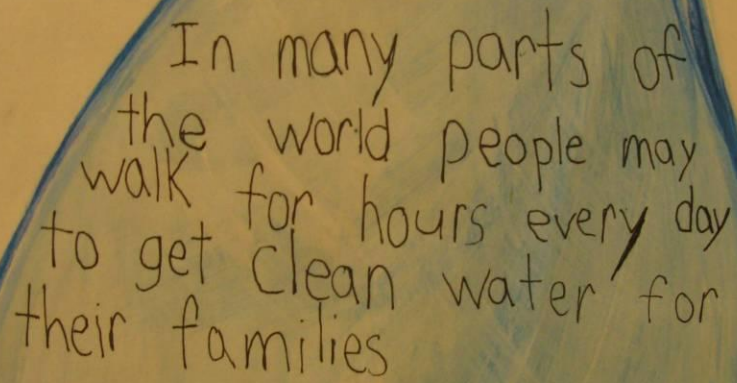 In many parts of
the world people may
walk for hours every day
to get clean water for
their families